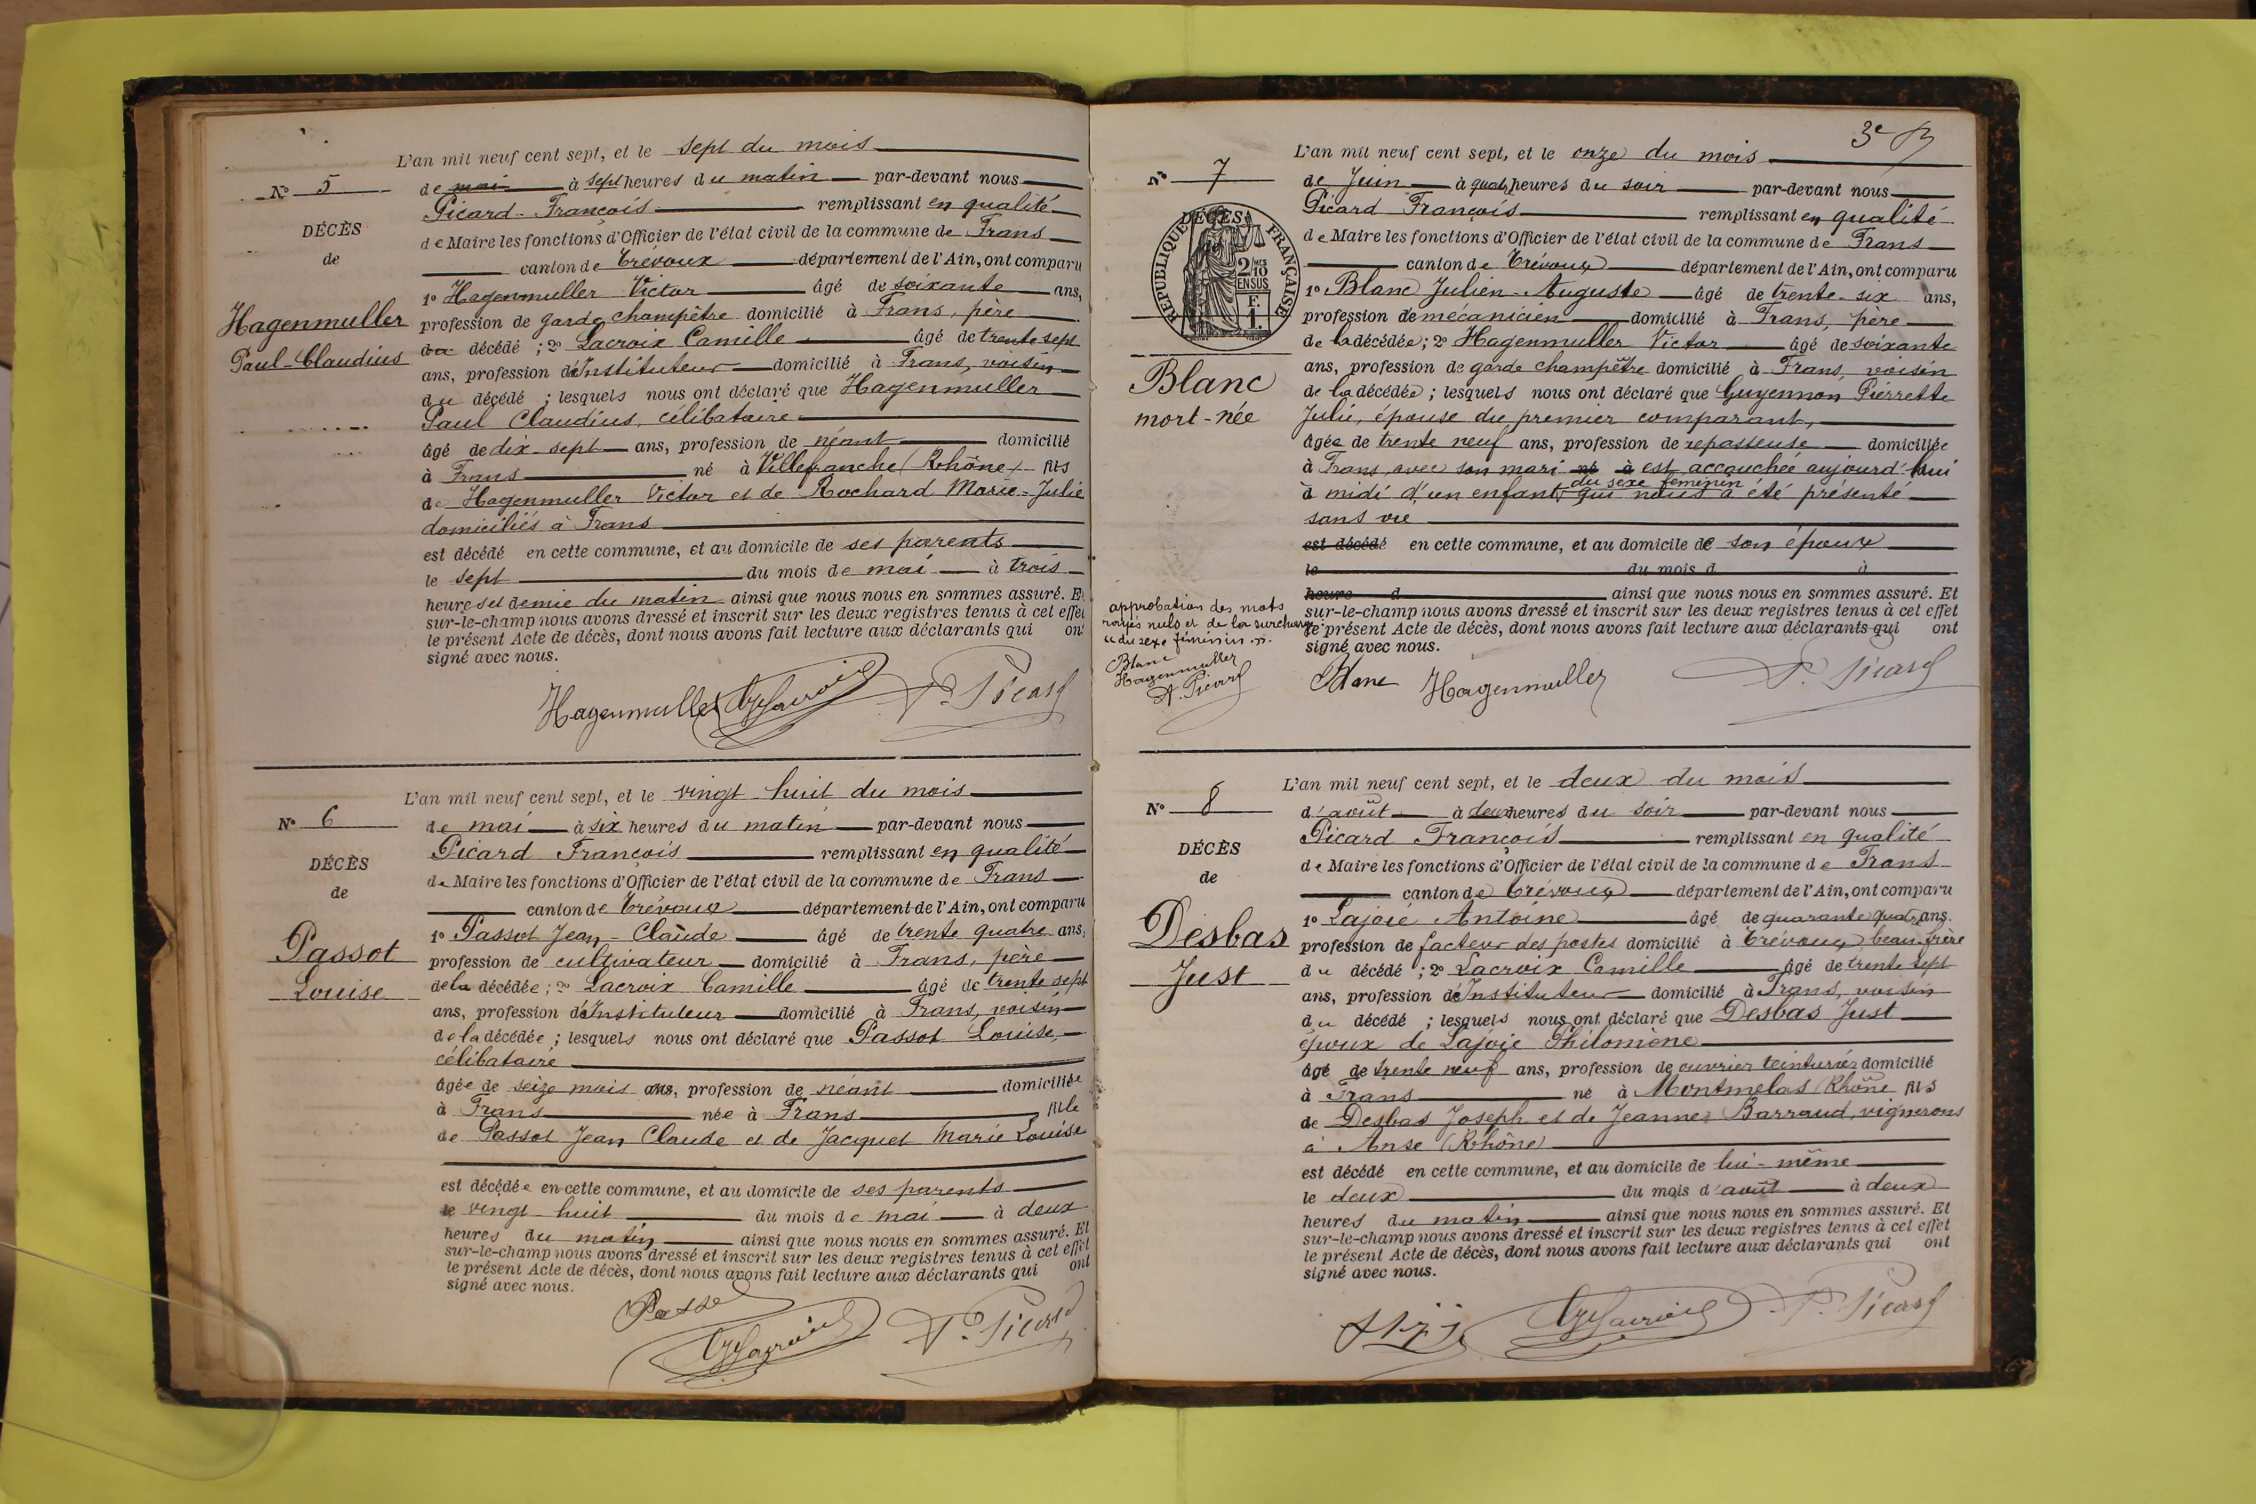 L'an mil neuf cent sept, et le sept du mois
N° 5
de mai à sept heures du matin par-devant nous
Picard François remplissant en qualité
DÉCÈS
de Maire les fonctions d'Officier de l'état civil de la commune de Frans
de
canton de Trévoux département de l'Ain, ont comparu
1° Hagenmuller Victor âgé de soixante ans,
Hagenmuller
profession de garde champêtre domicilié à Frans, père
Paul-Claudius
du décédé ; 2° Lacroix Camille âgé de trente sept
ans, profession d'Instituteur domicilié à Frans, voisin
du décédé ; lesquels nous ont déclaré que Hagenmuller
Paul Claudius, célibataire
âgé de dix-sept ans, profession de néant domicilié
à Frans né à Villefranche (Rhône) fils
de Hagenmuller Victor et de Rochard Marie-Julie
domiciliés à Frans
est décédé en cette commune, et au domicile de ses parents
le sept du mois de mai à trois
heures et demie du matin ainsi que nous nous en sommes assuré. Et
sur-le-champ nous avons dressé et inscrit sur les deux registres tenus à cet effet
le présent Acte de décès, dont nous avons fait lecture aux déclarants qui ont
signé avec nous.
Hagenmuller Lacroix F. Picard
L'an mil neuf cent sept, et le vingt-huit du mois
N° 6
de mai à six heures du matin par-devant nous
Picard François remplissant en qualité
DÉCÈS
de Maire les fonctions d'Officier de l'état civil de la commune de Frans
de
canton de Trévoux département de l'Ain, ont comparu
1° Passot Jean-Claude âgé de trente quatre ans,
Passot
profession de cultivateur domicilié à Frans, père
Louise
de la décédée ; 2° Lacroix Camille âgé de trente sept
ans, profession d'Instituteur domicilié à Frans, voisin
de la décédée ; lesquels nous ont déclaré que Passot Louise,
célibataire
âgée de seize mois ans, profession de néant domiciliée
à Frans née à Frans fille
de Passot Jean Claude et de Jacquet Marie Louise
est décédée en cette commune, et au domicile de ses parents
le vingt huit du mois de mai à deux
heures du matin ainsi que nous nous en sommes assuré. Et
sur-le-champ nous avons dressé et inscrit sur les deux registres tenus à cet effet
le présent Acte de décès, dont nous avons fait lecture aux déclarants qui ont
signé avec nous.
Passot
Lacroix F. Picard
3e
L'an mil neuf cent sept, et le onze du mois
N° 7
de Juin à quatre heures du soir par-devant nous
Picard François remplissant en qualité
DÉCÈS
RÉPUBLIQUE FRANÇAISE
2/10 EN SUS
F. 1.
de Maire les fonctions d'Officier de l'état civil de la commune de Frans
canton de Trévoux département de l'Ain, ont comparu
1° Blanc Julien-Auguste âgé de trente-six ans,
profession de mécanicien domicilié à Frans, père
de la décédée ; 2° Hagenmuller Victor âgé de soixante
Blanc
ans, profession de garde champêtre domicilié à Frans, voisin
mort-née
de la décédée ; lesquels nous ont déclaré que Guyennon Pierrette
Julie, épouse du premier comparant,
âgée de trente neuf ans, profession de repasseuse domiciliée
à Frans avec son mari né à est accouchée aujourd'hui
du sexe féminin
à midi d'un enfant, qui nous a été présenté
sans vie
est décédé en cette commune, et au domicile de son époux
le du mois d à
heure d ainsi que nous nous en sommes assuré. Et
sur-le-champ nous avons dressé et inscrit sur les deux registres tenus à cet effet
le présent Acte de décès, dont nous avons fait lecture aux déclarants qui ont
signé avec nous.
approbation des mots
rayés nuls et de la surcharge
« du sexe féminin ».
Blanc
Hagenmuller
F. Picard
Blanc Hagenmuller F. Picard
L'an mil neuf cent sept, et le deux du mois
N° 8
d'août à deux heures du soir par-devant nous
Picard François remplissant en qualité
DÉCÈS
de Maire les fonctions d'Officier de l'état civil de la commune de Frans
de
canton de Trévoux département de l'Ain, ont comparu
1° Lajoie Antoine âgé de quarante quatre ans.
Desbas
profession de facteur des postes domicilié à Trévoux, beau-frère
Just
du décédé ; 2° Lacroix Camille âgé de trente sept
ans, profession d'Instituteur domicilié à Frans, voisin
du décédé ; lesquels nous ont déclaré que Desbas Just
époux de Lajoie Philomène
âgé de trente neuf ans, profession de ouvrier teinturier domicilié
à Frans né à Montmelas (Rhône) fils
de Desbas Joseph et de Jeanne Barraud, vignerons
à Anse (Rhône)
est décédé en cette commune, et au domicile de lui-même
le deux du mois d'août à deux
heures du matin ainsi que nous nous en sommes assuré. Et
sur-le-champ nous avons dressé et inscrit sur les deux registres tenus à cet effet
le présent Acte de décès, dont nous avons fait lecture aux déclarants qui ont
signé avec nous.
Lacroix F. Picard